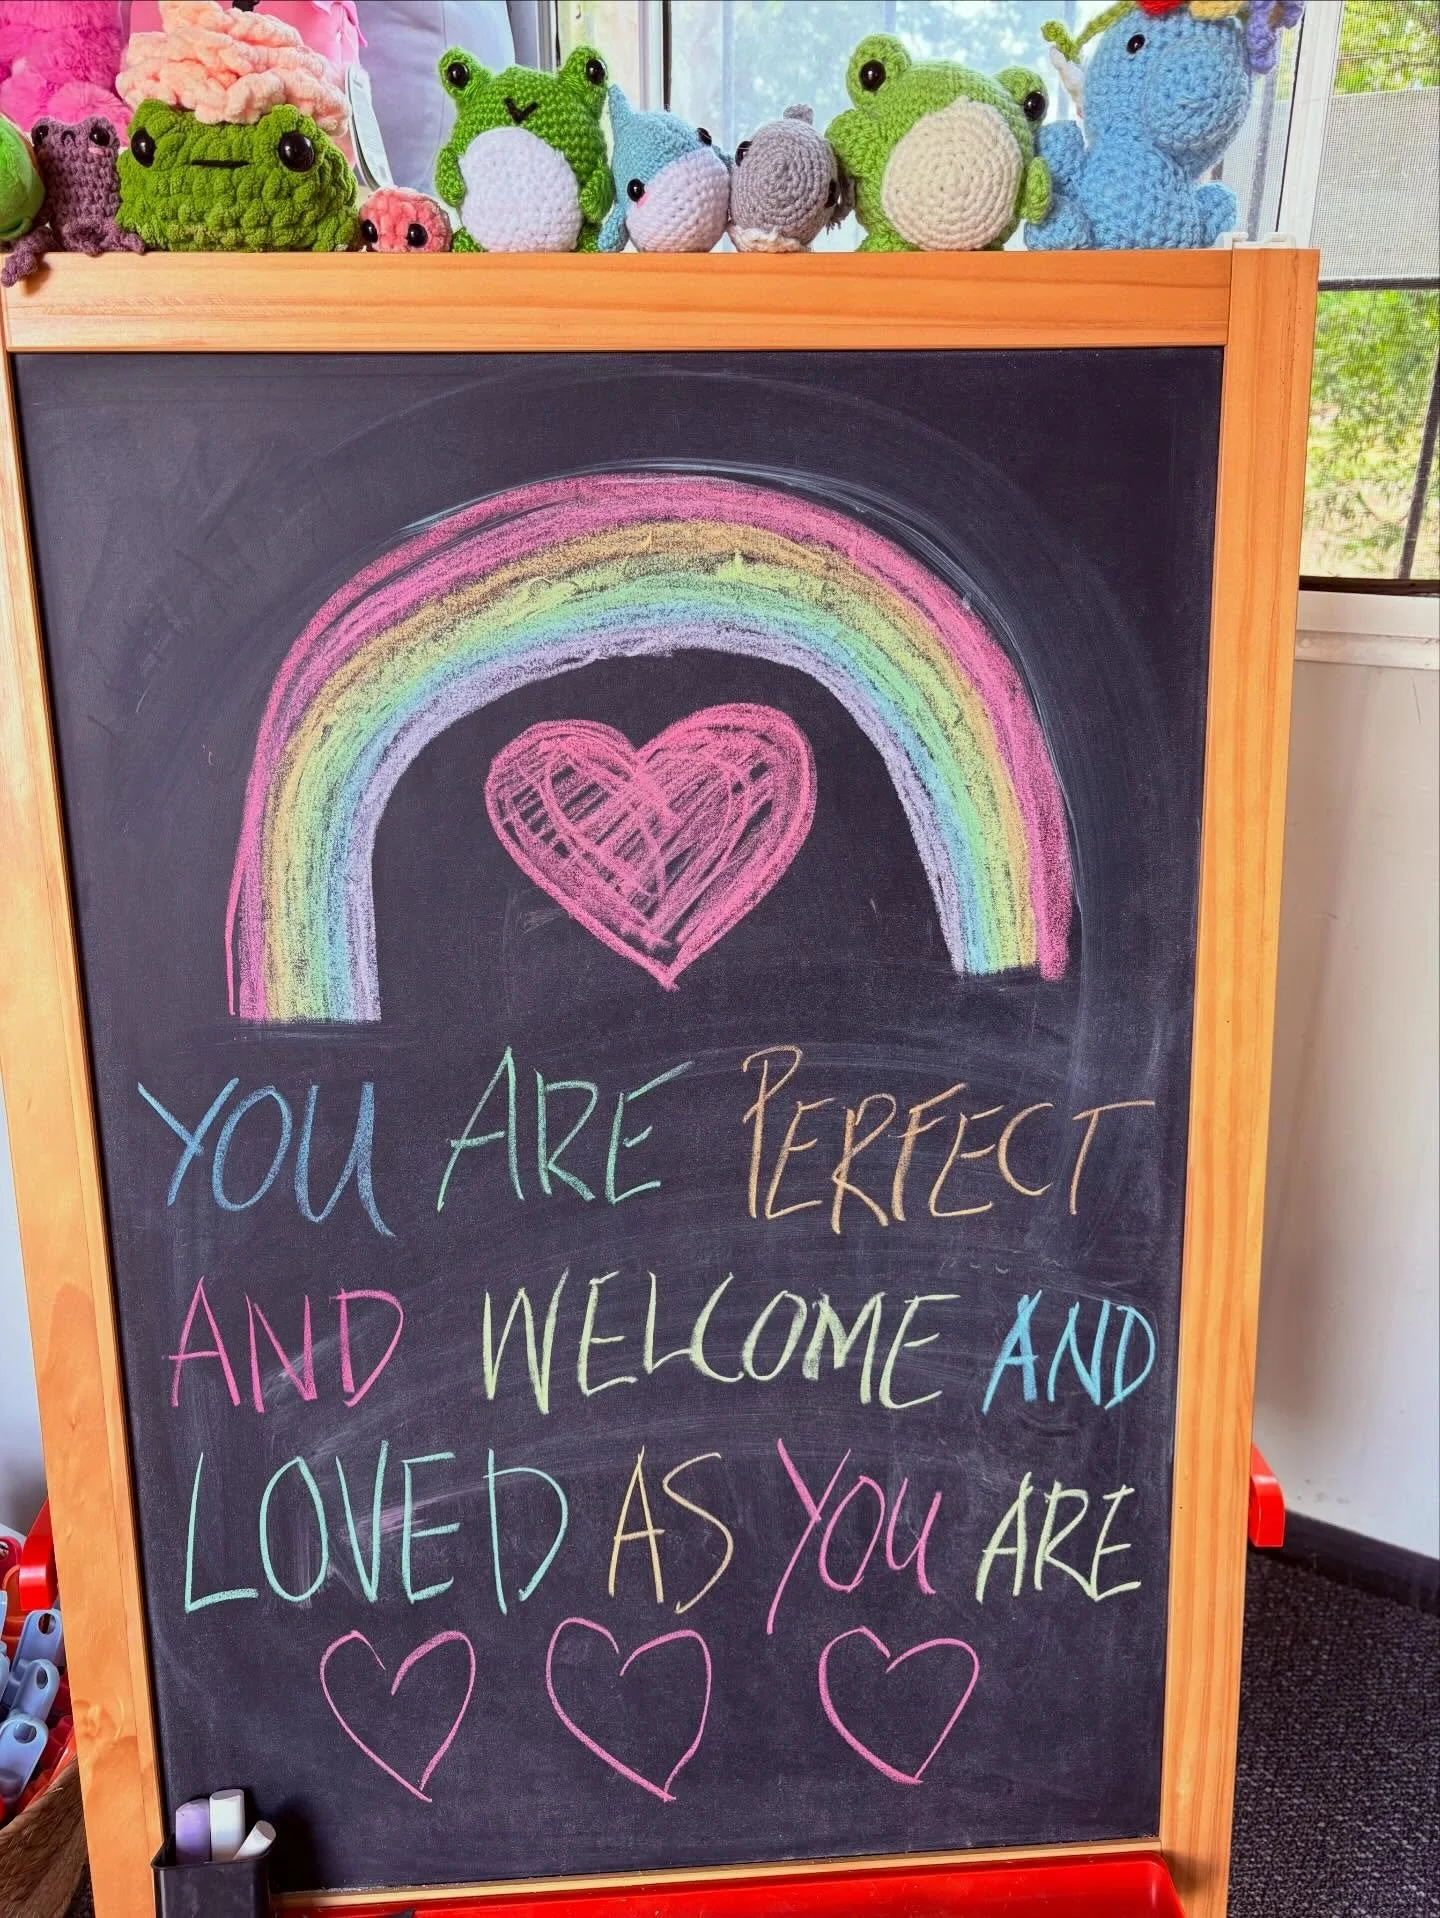 YOU ARE PERFECT
AND WELCOME AND
LOVED AS YOU ARE